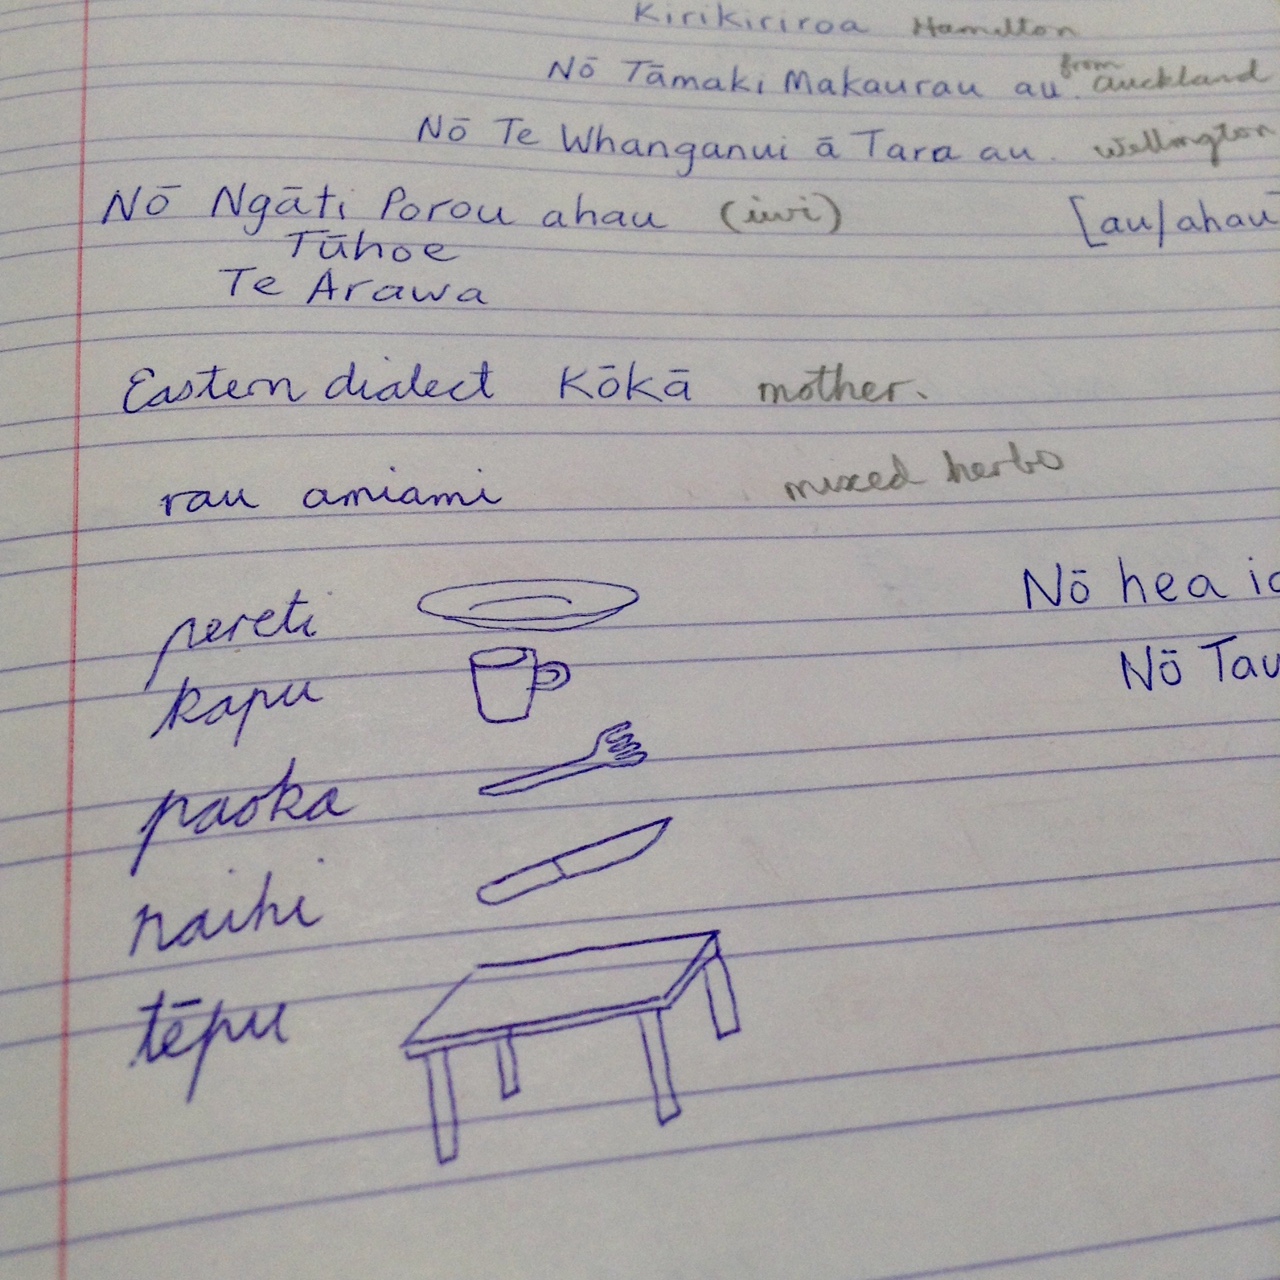 Kirikiriroa Hamilton
Nō Tāmaki Makaurau au. from Auckland
Nō Te Whanganui ā Tara au. Wellington
Nō Ngāti Porou ahau (iwi) [au/ahau
Tūhoe
Te Arawa
Eastern dialect Kōkā mother.
rau amiami mixed herbs
Nō hea
pereti
Nō
kapu
paoka
naihi
tēpu